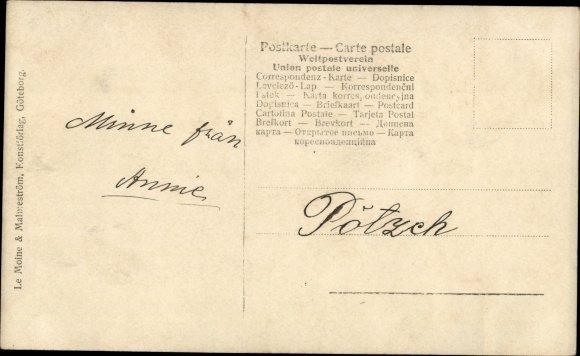 Le Moine & Malmeström, Konstförlag, Göteborg.
Minne från
Annie
Postkarte — Carte postale
Weltpostverein
Union postale universelle
Correspondenz-Karte — Dopisnice
Levelező-Lap — Korrespondenční
Lístek — Karta korrespondencyjna
Dopisnica — Briefkaart — Postcard
Cartolina Postale — Tarjeta Postal
Brefkort — Brevkort — Дописна
карта — Открытое письмо — Карта
кореспонденційна
Pötzch